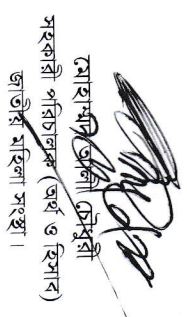 চৌধুরী
সহকারী পরিচালক (অর্থ ও হিসাব)
জাতীয় মহিলা সংস্থা।